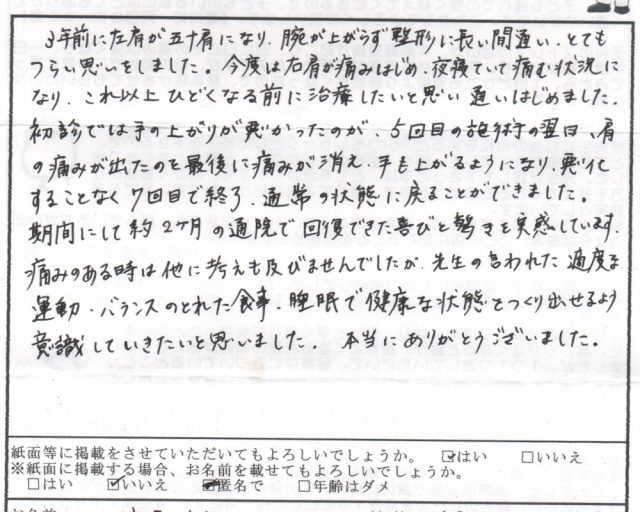 3年前に左肩が五十肩になり、腕が上がらず整形に長い間通い、とても
つらい思いをしました。今度は右肩が痛みはじめ、夜寝ていて痛む状況に
なり、これ以上ひどくなる前に治療したいと思い通いはじめました。
初診では手の上がりが悪かったのが、5回目の施術の翌日、肩
の痛みが出たのを最後に痛みが消え、手も上がるようになり、悪化
することなく7回目で終了、通常の状態に戻ることができました。
期間にして約2ヶ月の通院で回復できた喜びと驚きを実感しています。
痛みのある時は他に考えも及びませんでしたが、先生の言われた適度な
運動・バランスのとれた食事・睡眠で健康な状態をつくり出せるよう
意識していきたいと思いました。本当にありがとうございました。
紙面等に掲載をさせていただいてもよろしいでしょうか。 ☑はい □いいえ
※紙面に掲載する場合、お名前を載せてもよろしいでしょうか。
□はい ☑いいえ ☑匿名で □年齢はダメ